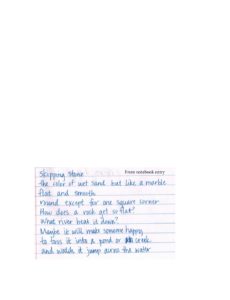 Skipping Stone From notebook entry
the color of wet sand but like a marble
flat and smooth
round except for one square corner
How does a rock get so flat?
What river beat it down?
Maybe it will make someone happy
to toss it into a pond or creek
and watch it jump across the water